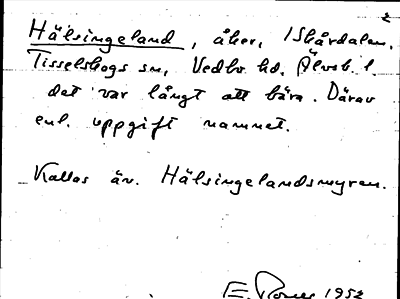 2
Hälsingeland, åker, Iskårdalen,
Tisselskogs sn, Vedbo hd. Älvsb. l.
det var långt att bära. Därav
enl. uppgift namnet.
Kallas äv. Hälsingelandsmyren.
E. 1952